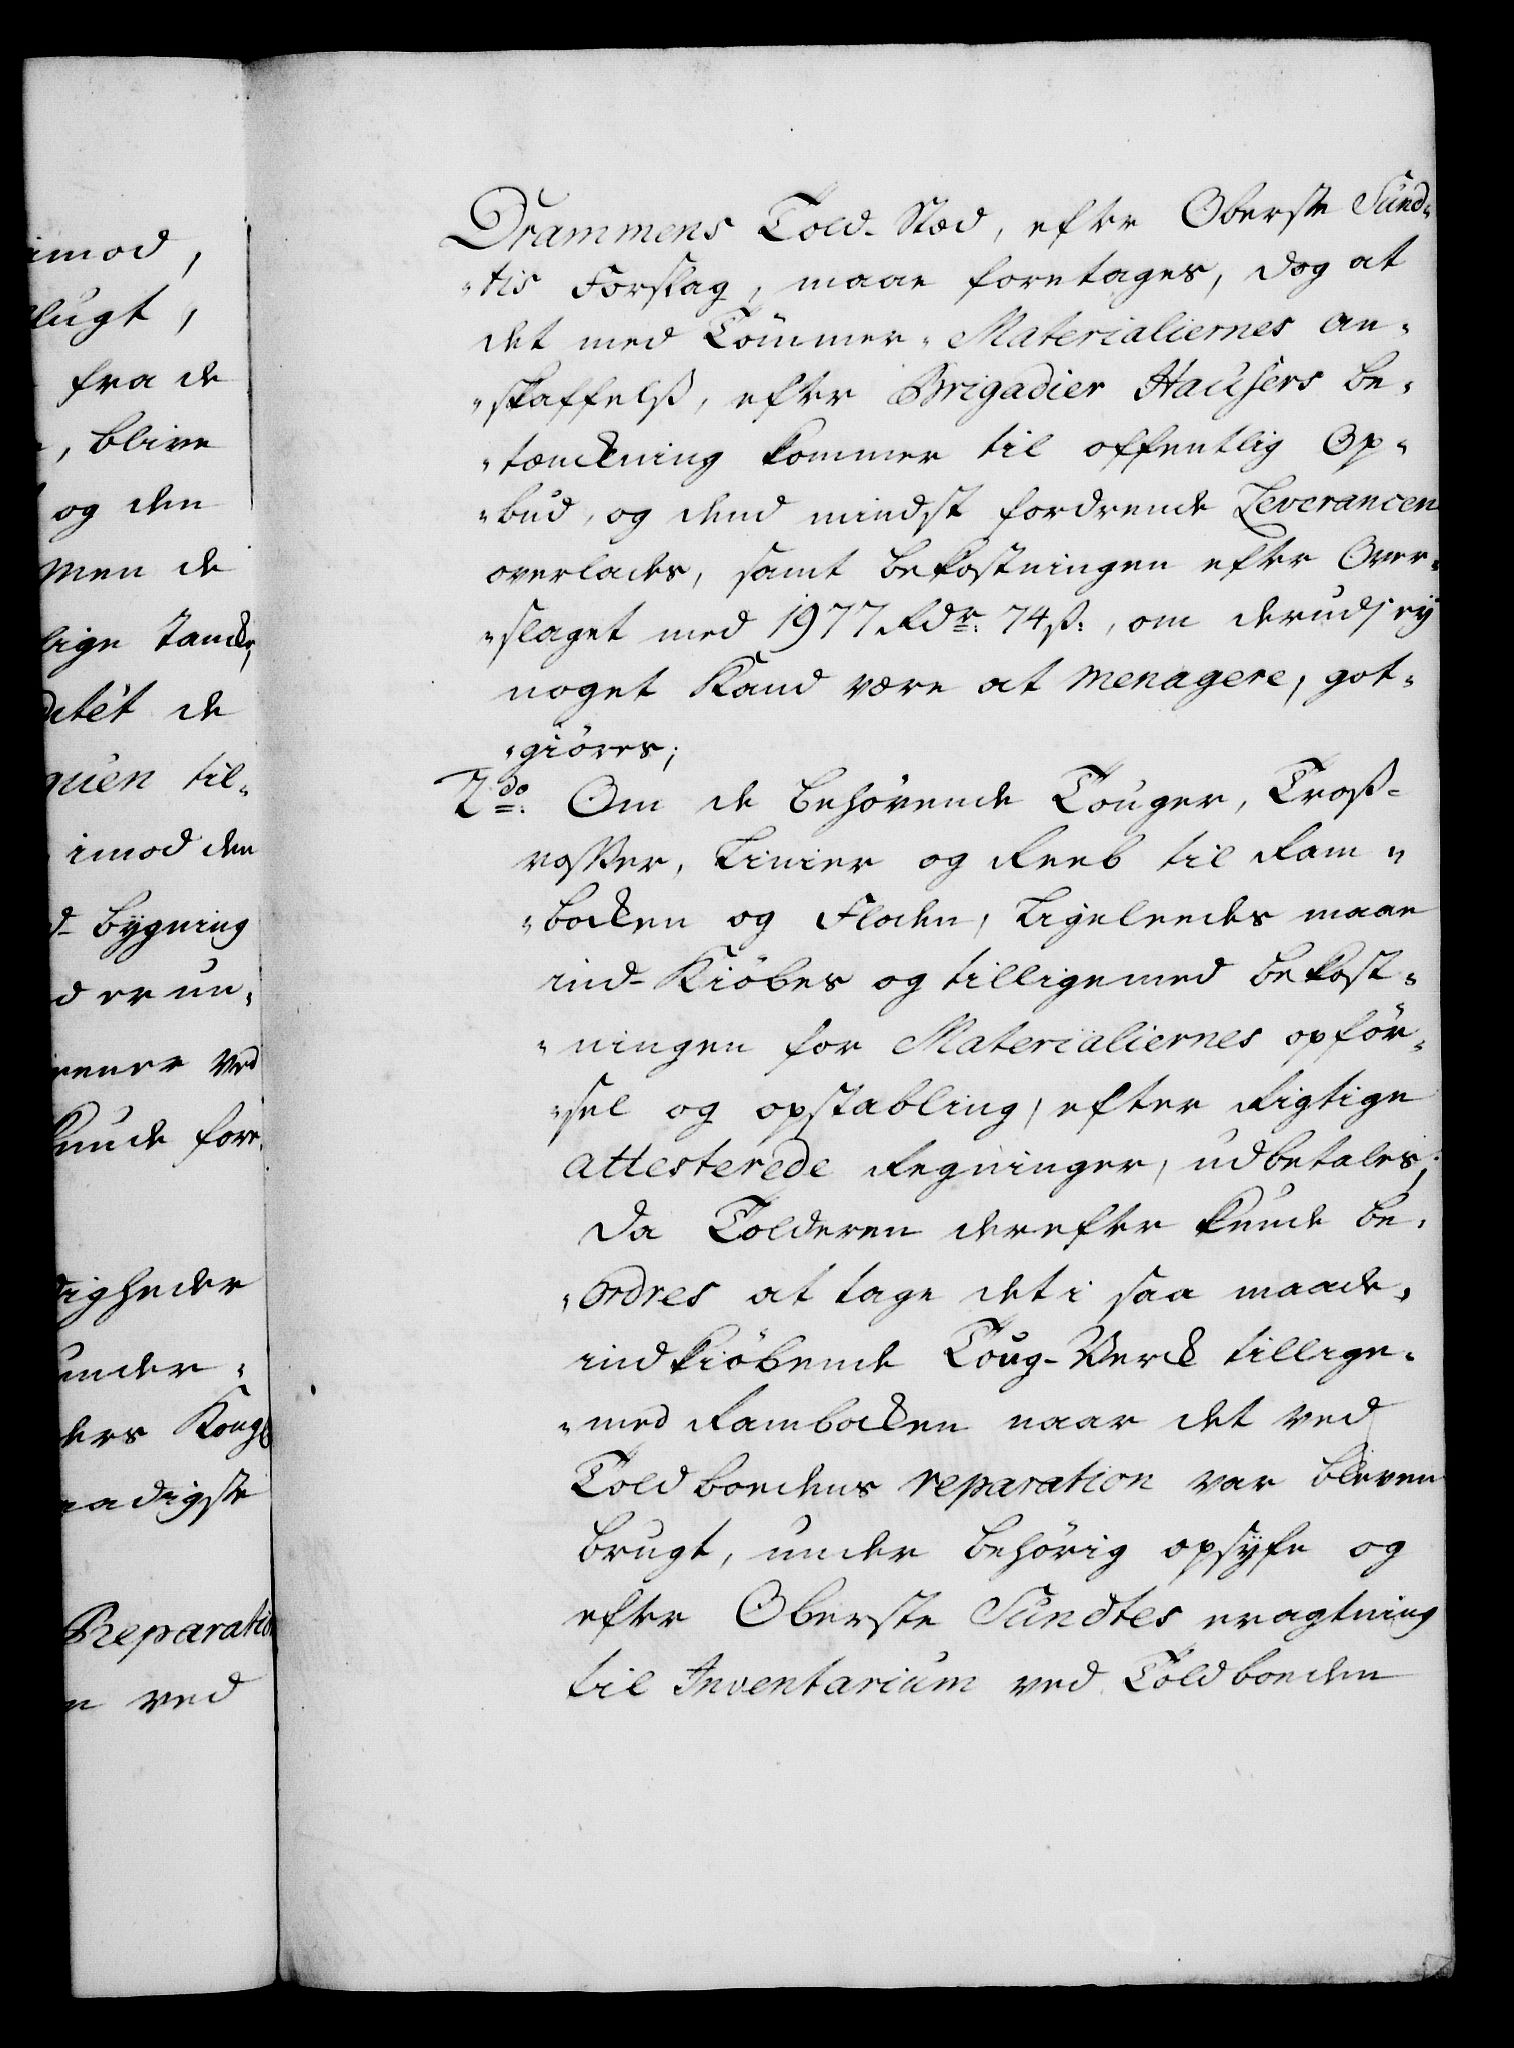 imod,
flugt,
fra de
, blive
og den
men de
lige Tancke,
ditét de
quen til-
imod den
d- bÿgning
d er un-
rener ved
kunde fore-
digheder
under-
ders Kongl
naadigste
Reparatio
n ved
Drammens Told-Stæd, efter Oberste Sund-
-tis Forslag, maae foretages, dog at
det med Tömmer-Materialiernes an-
-skaffelsß, efter Brigadier Haüsers be-
-tænckning kommer til offentlig Op-
-bud, og dend mindst fordrende Leverancen
overlades, samt bekostningen efter Over-
-slaget med 1977 Rdr: 74ß:, om derudj ey
noget Kand være at menagere, got-
-giöres;
2do: Om de behörende Touger, Troß-
voßer, Linier og Reeb til Ram-
-bocken og Floden, ligeleedes maae
ind-Kiöbes og tilligemed bekost-
-ningen for Materialiernes opför-
-sel og opstabling, efter Rigtige
attesterede Regninger, udbetales;
Da Tolderen derefter kunde be-
-ordres at tage det i saa maade-
indkiöbende Toug-Verck tillige-
-med Rambocken naar det ved
Toldboedens reparation var bleven
brugt, under behörig opsÿn og
efter Oberste Sundtes eragtning
til Inventarium ved Toldboeden